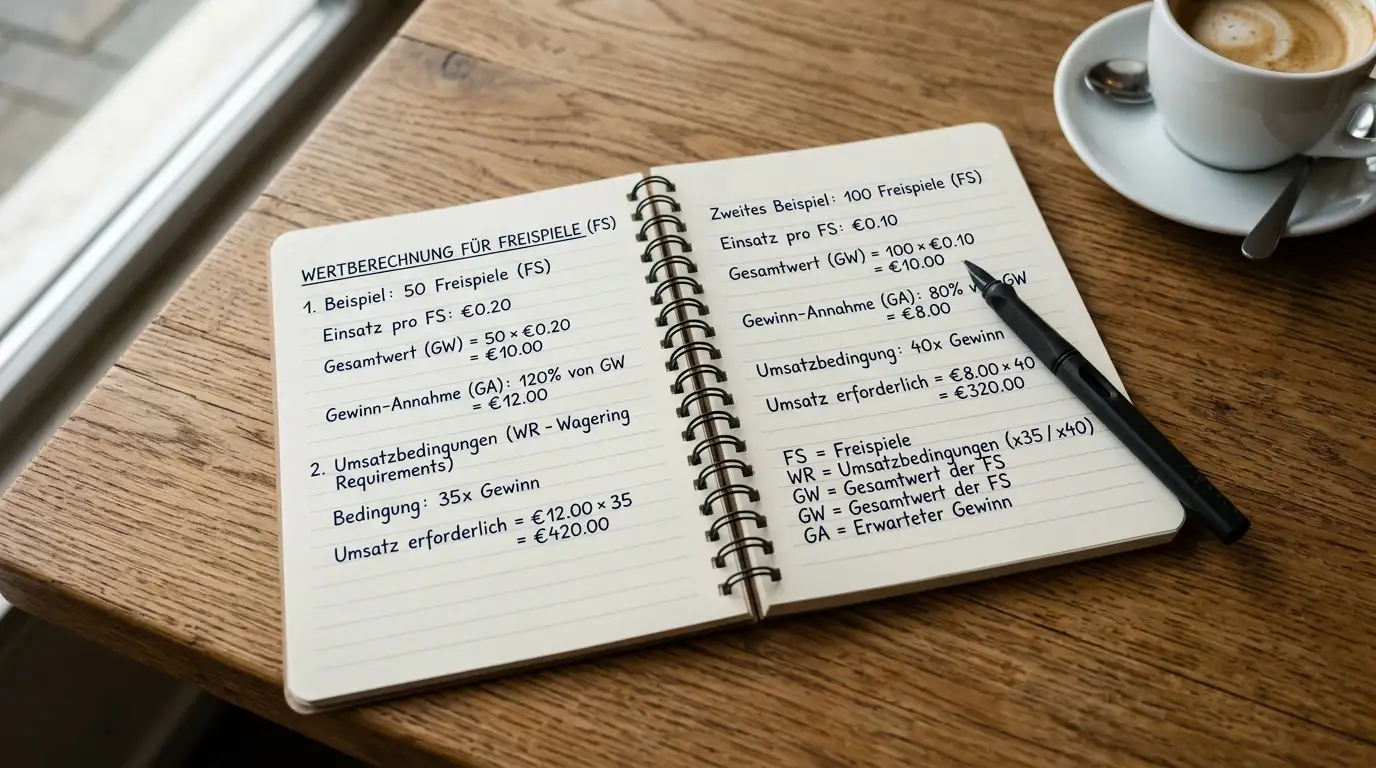 WERTBERECHNUNG FÜR FREISPIELE (FS)
1. Beispiel: 50 Freispiele (FS)
Einsatz pro FS: €0.20
Gesamtwert (GW) = 50 × €0.20
= €10.00
Gewinn-Annahme (GA): 120% von GW
= €12.00
2. Umsatzbedingungen (WR - Wagering
Requirements)
Bedingung: 35x Gewinn
Umsatz erforderlich = €12.00 × 35
= €420.00
Zweites Beispiel: 100 Freispiele (FS)
Einsatz pro FS: €0.10
Gesamtwert (GW) = 100 × €0.10
= €10.00
Gewinn-Annahme (GA): 80% GW
= €8.00
Umsatzbedingung: 40x Gewinn
Umsatz erforderlich = €8.00 × 40
= €320.00
FS = Freispiele
WR = Umsatzbedingungen (x35 / x40)
GW = Gesamtwert der FS
GW = Gesamtwert der FS
GA = Erwarteter Gewinn